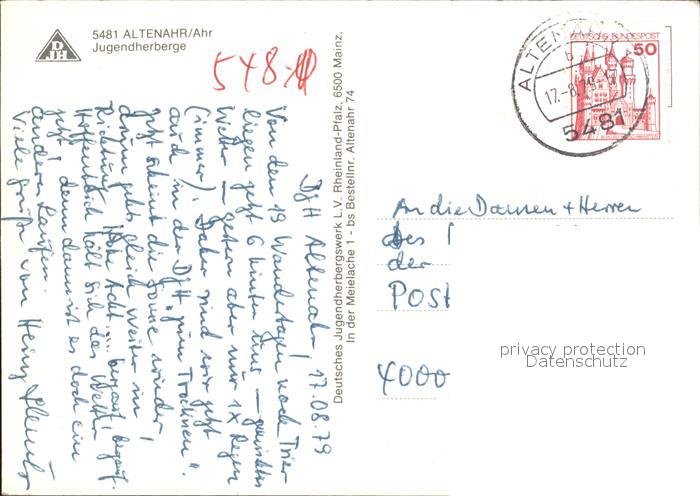 5481 ALTENAHR/Ahr
Jugendherberge
DJH
548
ALTENAHR
b
17.-8.79-17
5481
DEUTSCHE BUNDESPOST
50
DJH Altenahr, 17.08.79
Von den 19 Wandertagen nach Trier
liegen jetzt 6 hinter uns –
Wetter – gestern aber nur 1x Regen
(immer). Daher sind wir jetzt
auch in der DJH "zum Trocknen".
Jetzt scheint die Sonne wieder,
drum geht's gleich weiter in
Richtung Hohe Acht... bergauf, bergauf.
Hoffentlich hält sich das Wetter
jetzt, denn dann ist es doch ein
anderes Laufen.
Viele Grüße von Heinz
Deutsches Jugendherbergswerk L.V. Rheinland-Pfalz, 6500 Mainz,
In der Meielache 1 - bs Bestellnr. Altenahr 74
An die Damen + Herren
des
der
POST
4000
privacy protection
Datenschutz